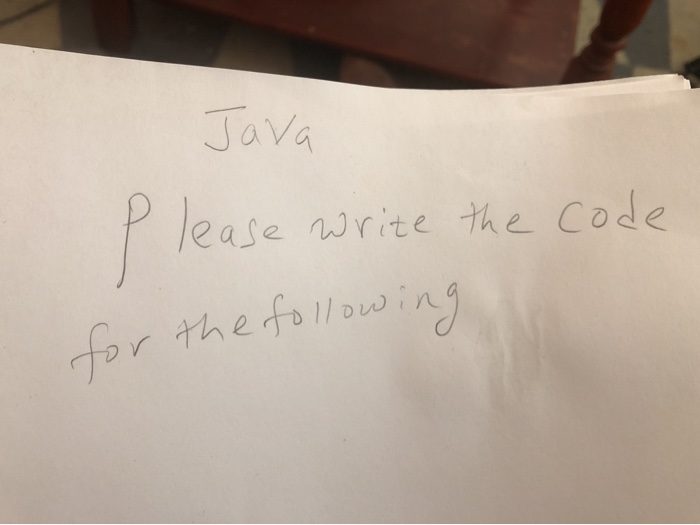 Java
Please write the code
for the following